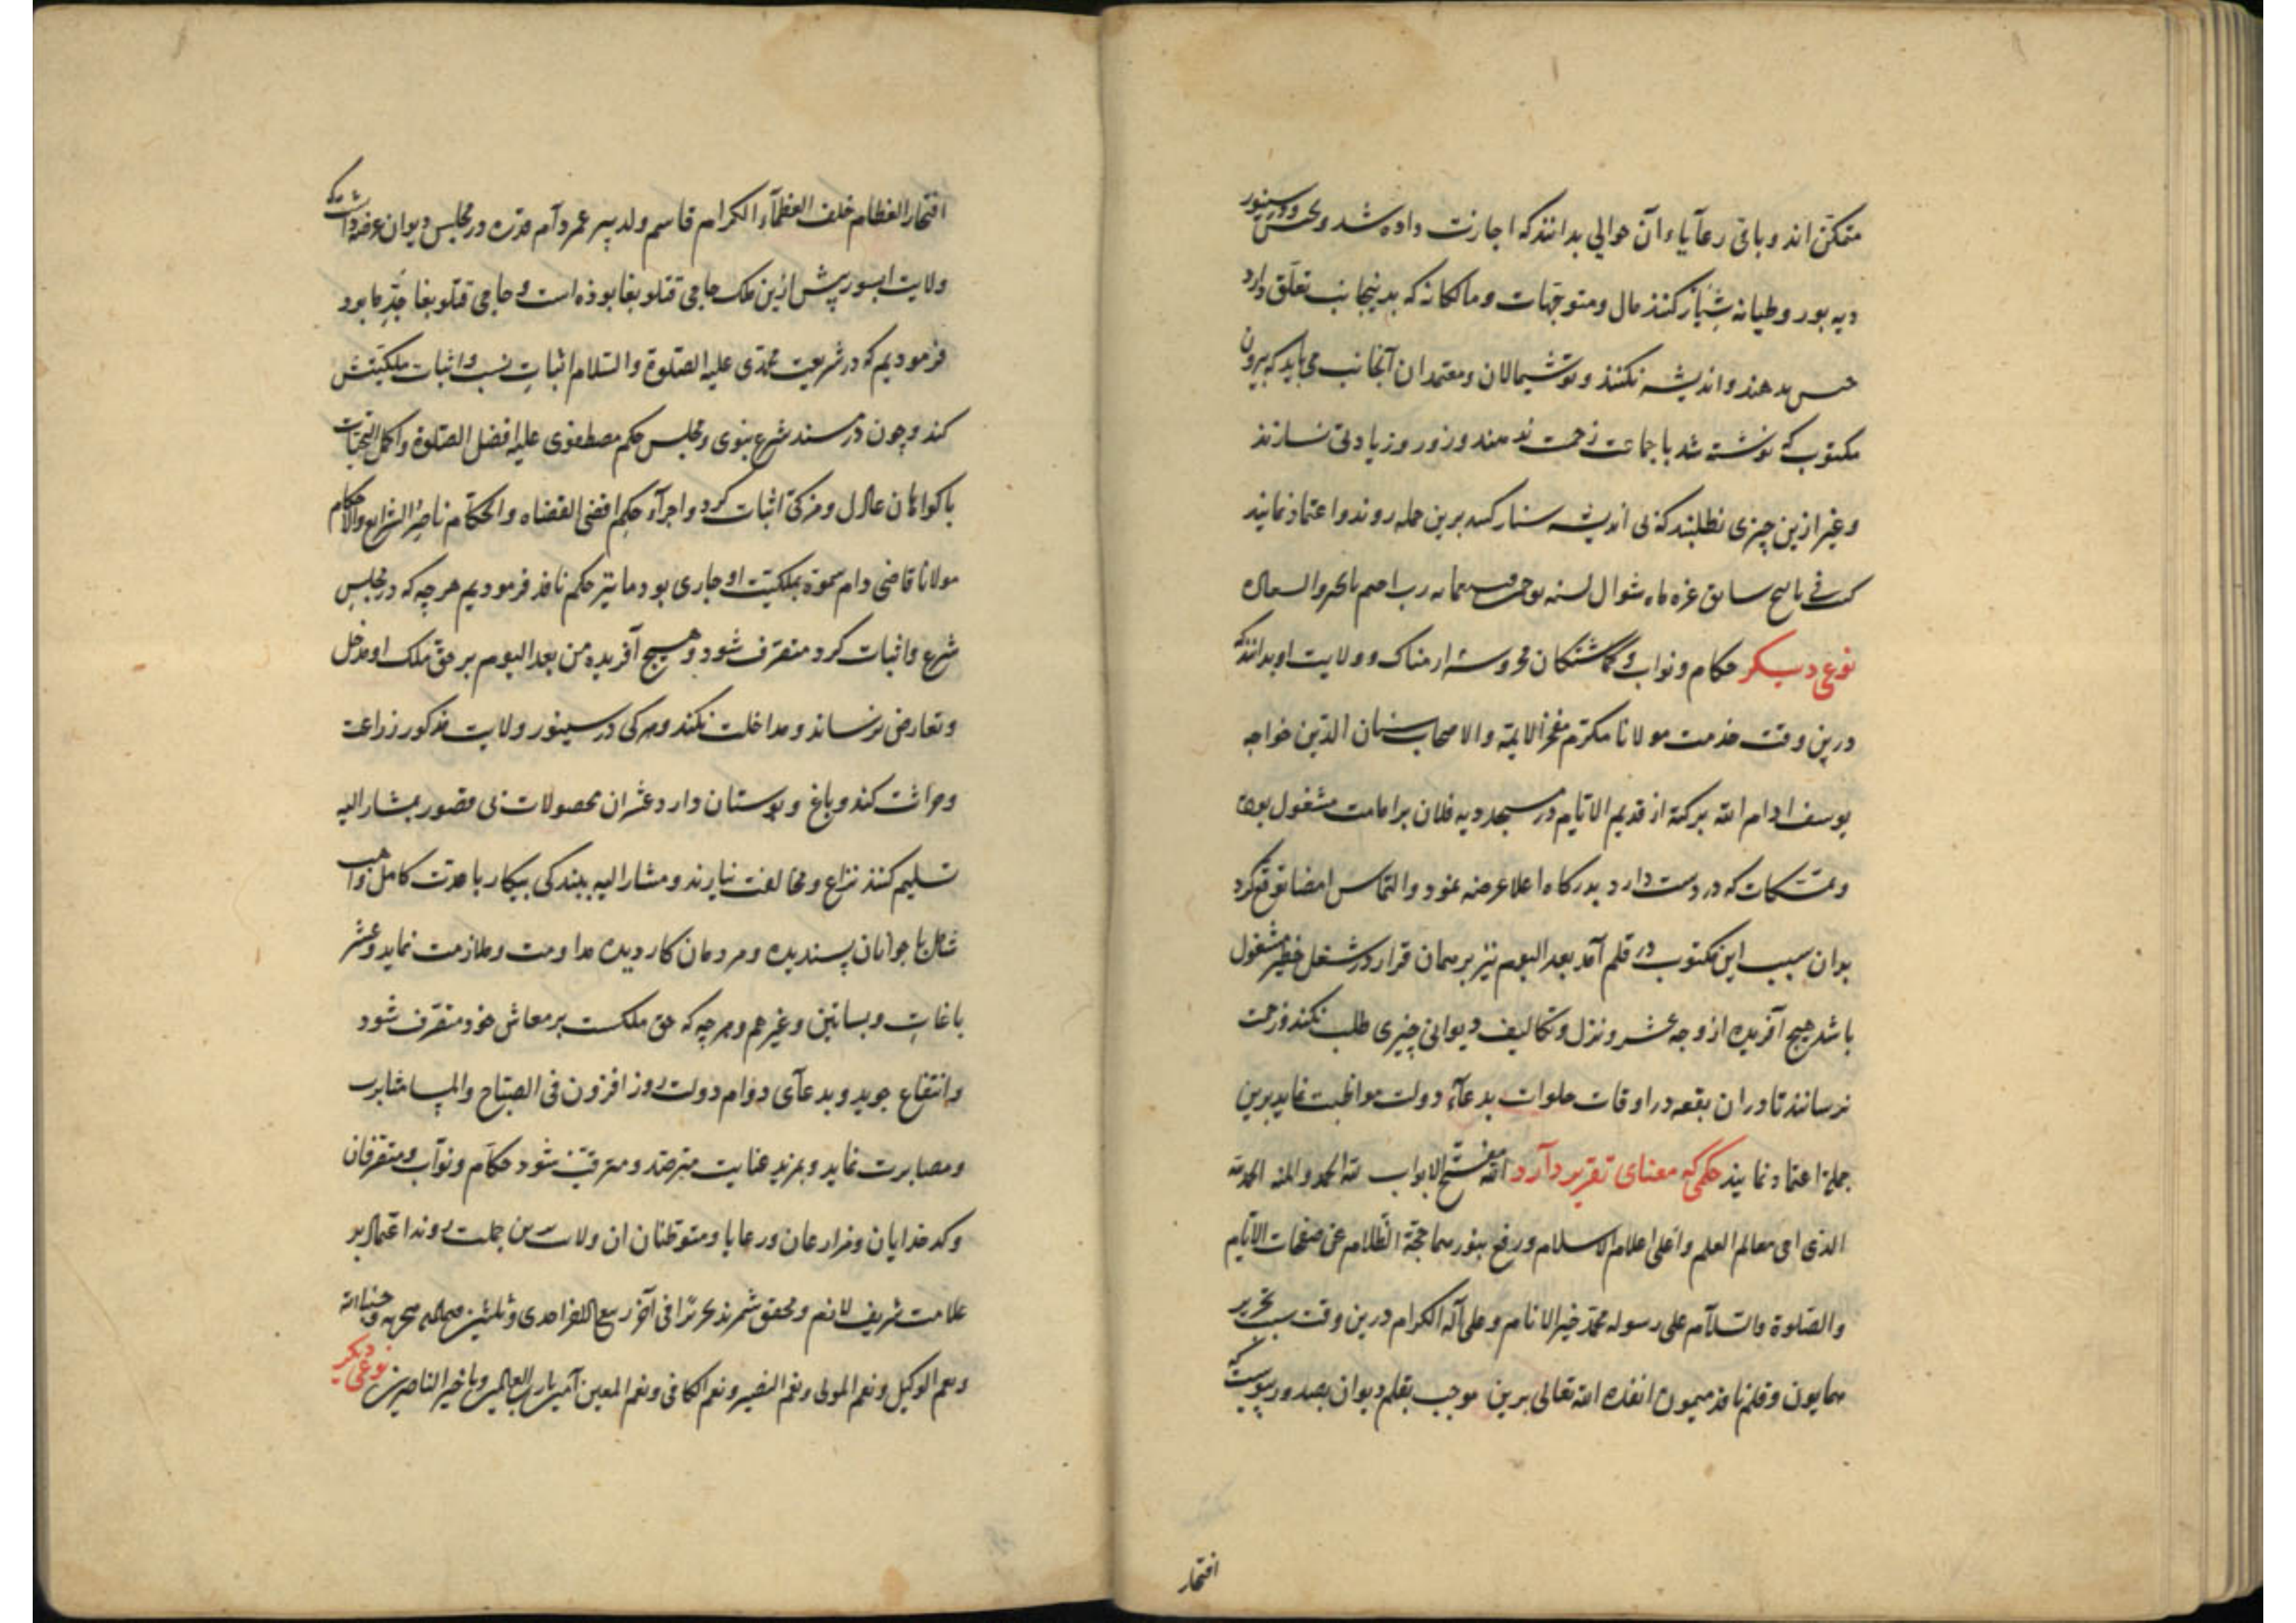 متمکن اند و باقی رعآیاء آن حوالی بدانند که اجازت داده شد و کس در سینور
دیه بور و طیانه شیار کنند مال و متوجهات و مالکانه که بدینجانب تعلق دارد
حسن بدهند و اندیشه نکنند و توشیمالان و معتمدان آنجانب می باید که بیرون
مکتوب که نوشته شد با جماعت زحمت ندهند و زور و زیادتی نسازند
و غیر ازین چیزی نطلبند که بی اندیشه برین جمله روند و اعتماد نمایند
غره ماه شوال لسنه رب اختم بالخیر والسعاده
نوعی دیگر حکام و نواب و گماشتگان محروسۀ ارمناک و ولایت او بدانند که
درین وقت خدمت مولانا مکرم مفخر الایمة والاصحاب سنان الدین خواجه
یوسف ادام الله برکته از قدیم الایام در مسجد دیه فلان بر امامت مشغول بوده
و تمسکات که در دست دارد بدرکاه اعلا عرضه نمود و التماس امضا توقع کرد
بوان سبب این مکتوب در قلم آمد بعد الیوم نیز بر همان قرار در شغل خطیر مشغول
باشد هیچ آفریده از وجه عشر و نزل و تکالیف دیوانی چیزی طلب نکند و زحمت
نرسانند تا دران بقعه در اوقات صلوات بدعاء دولت مواظبت نماید برین
جمله اعتماد نمایند حکمی که معنای تقریر دآرد الله مفتح الابواب لله الحمد والمنه الحمد لله
الذی معالم العلم و اعلی اعلام الاسلام و رفع بنورهما الظلام عن صفحات الایام
والصلوة والسلآم علی رسوله محمد خیر الانام و علی آله الکرام درین وقت سبب تحریر
همایون و قلم نافذ میمون انفذه الله تعالی برین موجب بقلم دیوان بصدور پیوست که
افتخار
افتخار العظام خلف العظمآء الکرام قاسم ولد پیر عمر دآم قدره در مجلس دیوان عرضه داشت که
ولایت ابسور پیش ازین ملک حاجی قتلوبغا بوذه است و حاجی قتلوبغا جد ما بود
فرمودیم که در شریعت محمدی علیه الصلوة والسلام اثبات نسب و اثبات ملکیتش
کند و چون در مسند شرع نبوی و مجلس حکم مصطفوی علیه افضل الصلوة و اکمل التحیات
با کواهان عادل و مزکی اثبات کرد و اجرآء حکم اقضی القضاه والحکام ناصر الشرایع والاحکام
مولانا قاضی دام سموه بملکیت او جاری بود ما نیز حکم نافذ فرمودیم هرچه که در مجلس
شرع و اثبات کرد متصرف شود و هیچ آفریده من بعد الیوم بر حق ملک او مدخل
و تعارض نرساند و مداخلت نکند و هرکی در سینور ولایت مذکور زراعت
و حراثت کند و باغ و بوستان دارد عشران محصولات بی قصور بمشار الیه
تسلیم کنند نزاع و مخالفت نیارند و مشار الیه ببندکی بیکار باعدت کامل و اهب
شامل با جوانان پسندیده و مردمان کاردیده مداومت و ملازمت نماید و عشر
باغات و بساتین و غیرهم و هرچه که حق ملکست بر معاش خود متصرف شود
و انتفاع جوید و بدعآی دوام دولت روز افزون فی الصباح والمسا مثابرت
و مصابرت نماید و بمزید عنایت مترصد و مترقب شود حکام و نواب و متصرفان
و کدخذایان و مزارعان و رعایا و متوطنان ان ولایت برین جملت روند اعتماد بر
علامت شریف لازم و محقق شمرند تحریرا فی آخر ربیع الاخر احدی و ثلثین و حسبنا الله
و نعم الوکیل و نعم المولی و نعم النصیر و نعم الکافی و نعم المعین آمین یا رب العالمین و یا خیر الناصرین نوعی دیگر